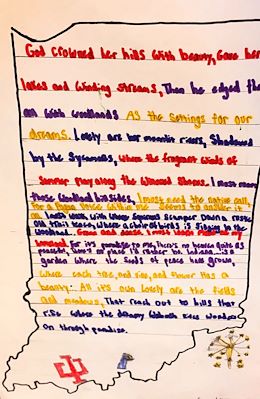 God crowned her hills with beauty, Gave her
lakes and winding streams, Then he edged them
all with woodlands As the settings for our
dreams. Lovely are her moonlit rivers, Shadowed
by the Sycamores, Where the fragrant winds of
Summer Play along the Willowed Shores. I must roam
those Woodland hillsides, I must heed the native call,
For a Pagan voice within me seems to answer it
all. I must walk where squirrels scamper Down a rustic
old rail fence, where a choir of birds is singing In the
woodland. Green and dense. I must
for it's paradise to me, There's no heaven quite as
peaceful, There's no place I'd rather be. Indiana...is a
garden where the seeds of peace have grown,
where each tree, and vine, and flower Has a
beauty: All its own lovely are the fields
and meadows, That reach out to hills that
rise where the dreamy Wabash River wanders
on through paradise.